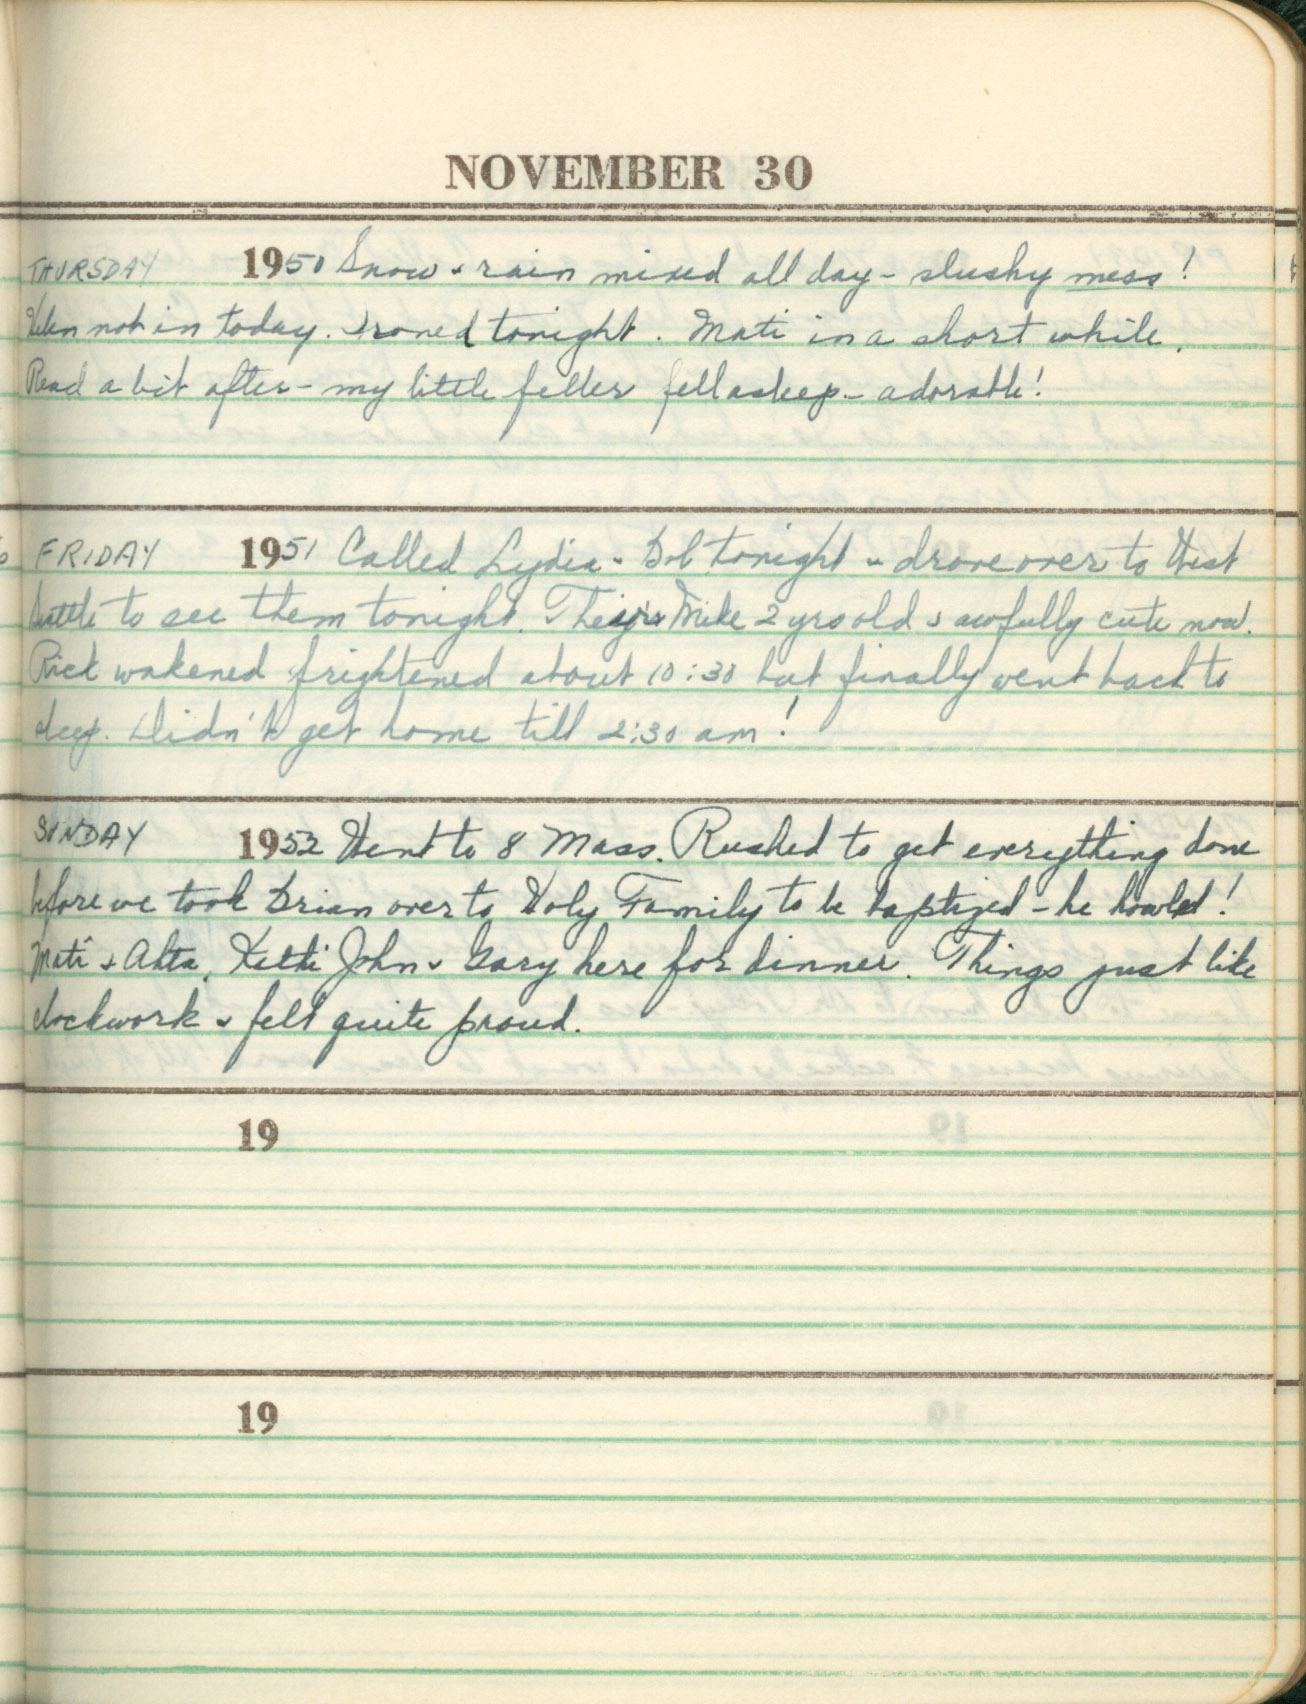 NOVEMBER 30
THURSDAY 1950 Snow & rain mixed all day - slushy mess!
Helen not in today. Ironed tonight. Mati in a short while.
Read a bit after - my little feller fell asleep - adorable!
FRIDAY 1951 Called Lydia & Bob tonight & drove over to West
Seattle to see them tonight. Their Mike 2 yrs old & awfully cute now.
Rick wakened frightened about 10:30 but finally went back to
sleep. Didn't get home till 2:30 am!
SUNDAY 1952 Went to 8 Mass. Rushed to get everything done
before we took Brian over to Holy Family to be baptized - he howled!
Mati & Ahta, John & Gary here for dinner. Things just like
clockwork & felt quite proud.
19
19